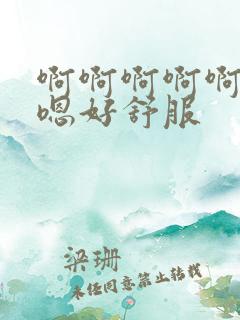 啊啊啊啊啊
嗯好舒服
梁珊
未任同意禁止转载